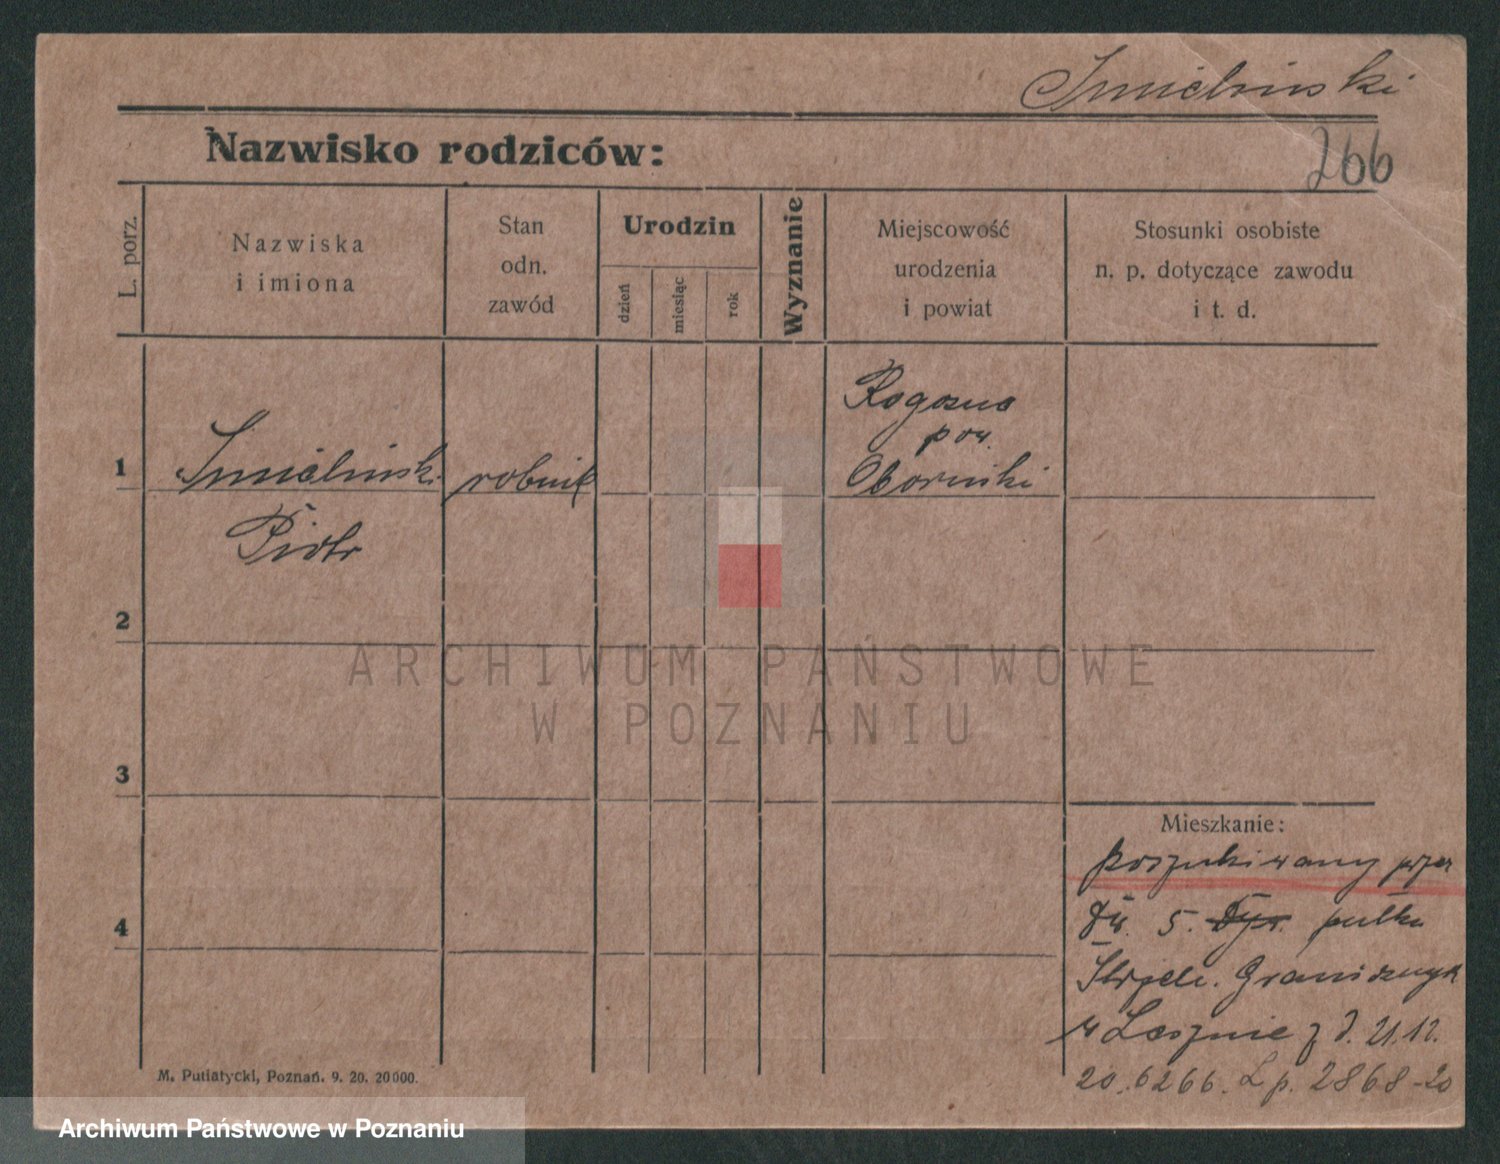 Śmieliński
266
Nazwisko rodziców:
L. porz.
Nazwiska
i imiona
Stan
odn.
zawód
Urodzin
dzień
miesiąc
rok
Wyznanie
Miejscowość
urodzenia
i powiat
Stosunki osobiste
n. p. dotyczące zawodu
i t. d.
1
Śmieliński
Piotr
robnik
Rogozno
pow.
Oborniki
2
3
4
Mieszkanie:
poszukiwany przez
5. pułku
Strzelc. Granicznych
w Lesznie z d. 21.12.
20. 6266. Lp. 2868-20
M. Putiatycki, Poznań. 9. 20. 20000.
ARCHIWUM PAŃSTWOWE
W POZNANIU
Archiwum Państwowe w Poznaniu